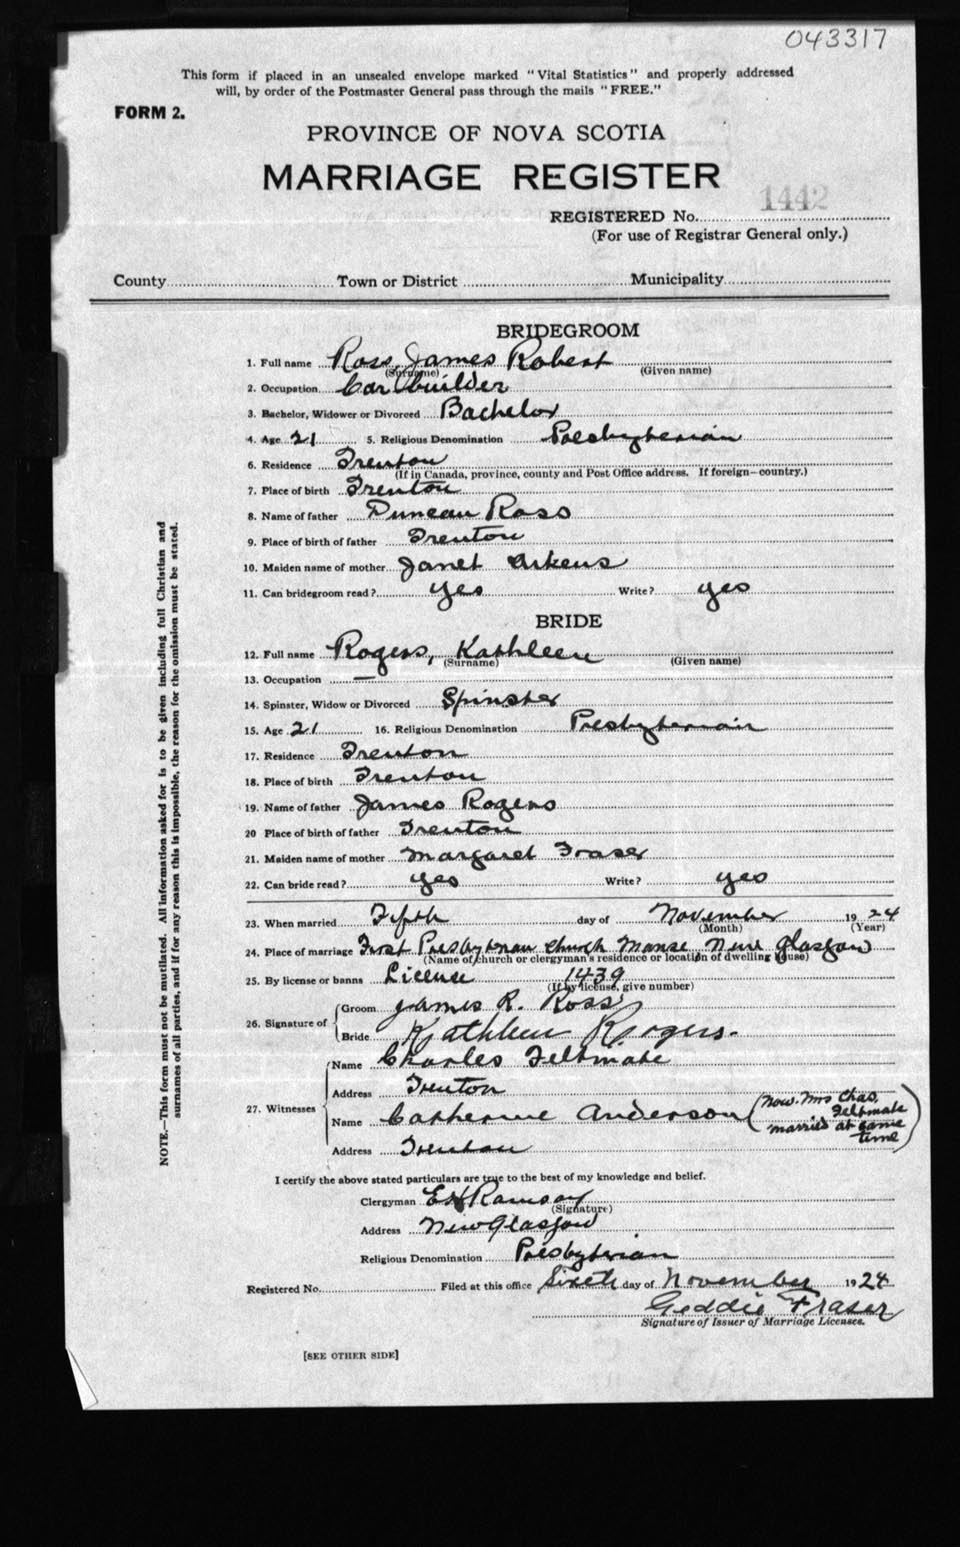 043317
This form if placed in an unsealed envelope marked "Vital Statistics" and properly addressed
will, by order of the Postmaster General pass through the mails "FREE."
FORM 2.
PROVINCE OF NOVA SCOTIA
MARRIAGE REGISTER
REGISTERED No. 1442
(For use of Registrar General only.)
County Town or District Municipality
BRIDEGROOM
1. Full name Ross, James Robert
(Surname) (Given name)
2. Occupation Car builder
3. Bachelor, Widower or Divorced Bachelor
4. Age 21 5. Religious Denomination Presbyterian
6. Residence Trenton
(If in Canada, province, county and Post Office address. If foreign—country.)
7. Place of birth Trenton
8. Name of father Duncan Ross
9. Place of birth of father Trenton
10. Maiden name of mother Janet Arkens
11. Can bridegroom read? yes Write? yes
BRIDE
12. Full name Rogers, Kathleen
(Surname) (Given name)
13. Occupation —
14. Spinster, Widow or Divorced Spinster
15. Age 21 16. Religious Denomination Presbyterian
17. Residence Trenton
18. Place of birth Trenton
19. Name of father James Rogers
20 Place of birth of father Trenton
21. Maiden name of mother Margaret Fraser
22. Can bride read? yes Write? yes
23. When married Fifth day of November 1924
(Month) (Year)
24. Place of marriage First Presbyterian Church Manse New Glasgow
(Name of church or clergyman's residence or location of dwelling house)
25. By license or banns Licence 1439
(If by license, give number)
26. Signature of Groom James R. Ross
Bride Kathleen Rogers.
27. Witnesses Name Charles Feltmate
Address Trenton
Name Catherine Anderson (Now Mrs Chas. Feltmate married at same time)
Address Trenton
I certify the above stated particulars are true to the best of my knowledge and belief.
Clergyman E H Ramsay
(Signature)
Address New Glasgow
Religious Denomination Presbyterian
Registered No. Filed at this office Sixth day of November 1924
Geddie Fraser
Signature of Issuer of Marriage Licenses.
[SEE OTHER SIDE]
NOTE.—This form must not be mutilated. All information asked for is to be given including full Christian and
surnames of all parties, and if for any reason this is impossible, the reason for the omission must be stated.